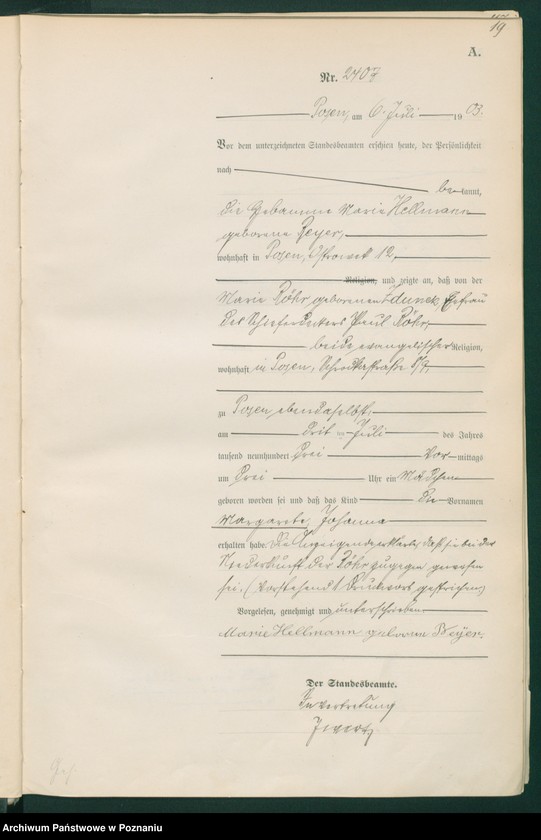 19
A.
Nr. 2407
Posen, am 6. Juli 1903.
Vor dem unterzeichneten Standesbeamten erschien heute, der Persönlichkeit
nach bekannt,
die Hebamme Marie Hellmann
geborene Beyer,
wohnhaft in Posen, Ostrowek 12,
Religion, und zeigte an, daß von der
Marie Röhr geborenen Dunck, Ehefrau
des Schieferdeckers Paul Röhr,
beide evangelischer Religion,
wohnhaft in Posen, Schrodkastraße 8/9,
zu Posen ebendaselbst
am dritten Juli des Jahres
tausend neunhundert drei Vormittags
um drei Uhr ein Mädchen
geboren worden sei und daß das Kind die Vornamen
Margarete Johanna
erhalten habe. Die Anzeigende erklärte, daß sie bei der
Niederkunft der Röhr zugegen gewesen
sei. (Vorstehend 1 Druckwort gestrichen)
Vorgelesen, genehmigt und unterschrieben
Marie Hellmann geborene Beyer
Der Standesbeamte.
In Vertretung
Archiwum Państwowe w Poznaniu